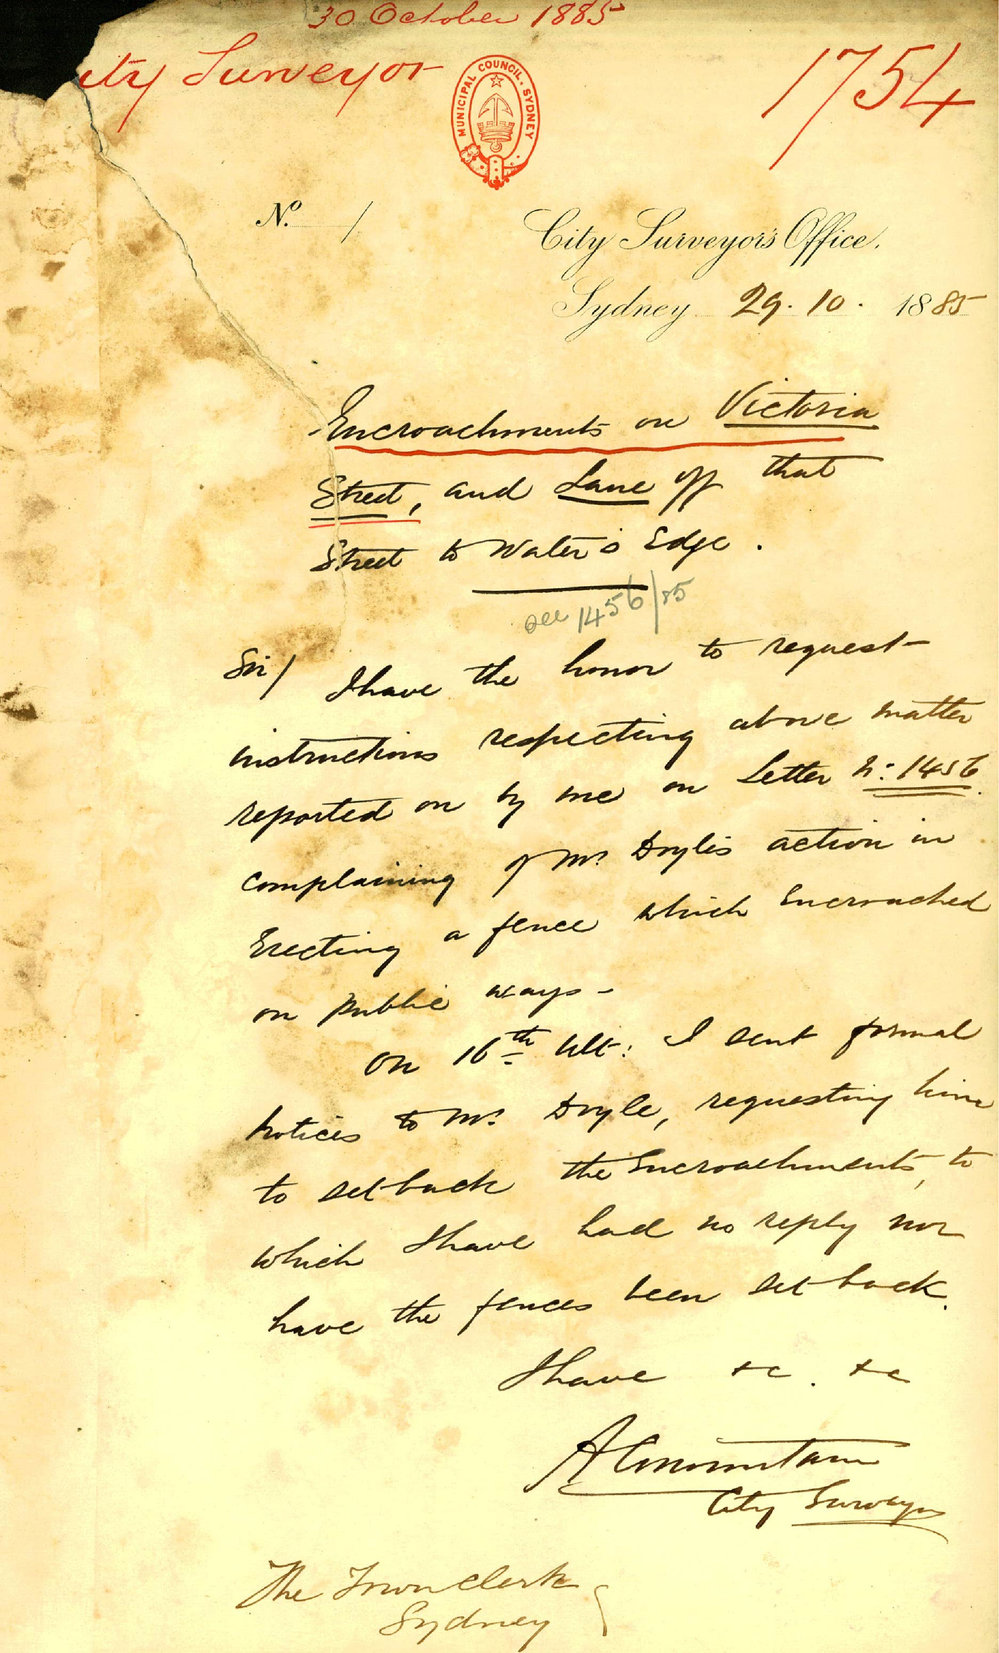 30 October 1885
City Surveyor
1754
MUNICIPAL COUNCIL. SYDNEY
No. /
City Surveyor's Office.
Sydney 29. 10. 1885
Encroachments on Victoria
Street, and Lane off that
Street to Water's Edge.
see 1456/85
Sir/ I have the honor to request
instructions respecting above matter
reported on by me on Letter No: 1456
complaining of Mr Doyle's action in
Erecting a fence which Encroached
on Public ways -
On 16th Ult: I sent formal
Notices to Mr. Doyle, requesting him
to set back the Encroachments, to
which I have had no reply nor
have the fences been set back.
I have &c. &c
City Surveyor
The Town Clerk
Sydney